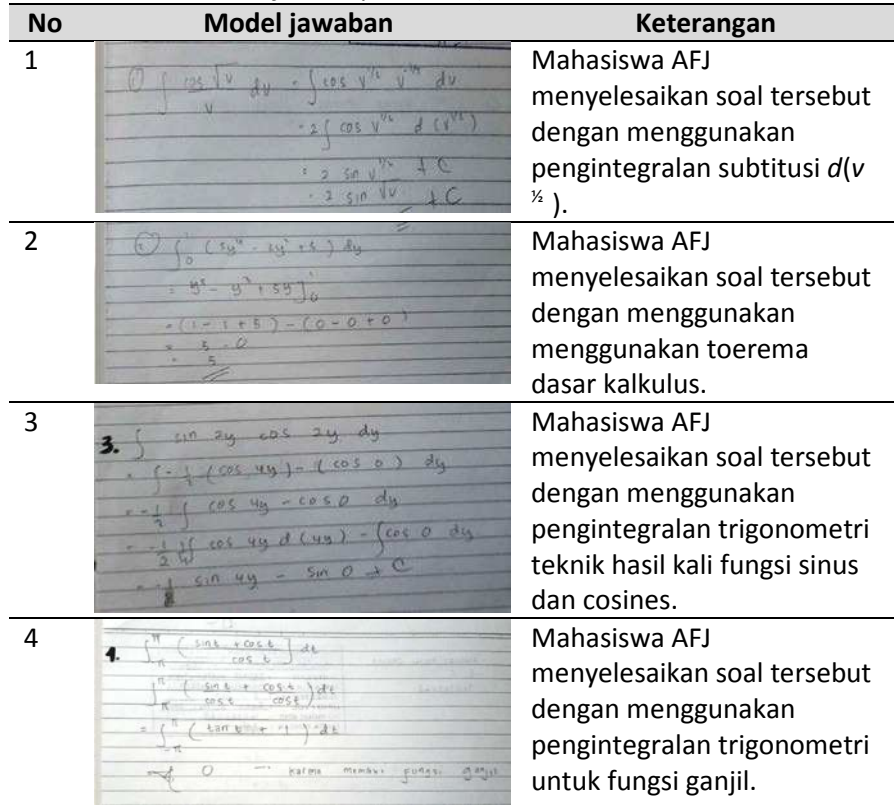 No Model jawaban Keterangan
1
① ∫ cos √v / v dv = ∫ cos v^1/2 v^-1/2 dv
= 2 ∫ cos v^1/2 d (v^1/2)
= 2 sin v^1/2 + C
= 2 sin √v + C
Mahasiswa AFJ
menyelesaikan soal tersebut
dengan menggunakan
pengintegralan subtitusi d(v
½ ).
2
∫₀¹ (5y⁴ - 3y² + 5) dy
= y⁵ - y³ + 5y]₀¹
= (1 - 1 + 5) - (0 - 0 + 0)
= 5 - 0
= 5
Mahasiswa AFJ
menyelesaikan soal tersebut
dengan menggunakan
menggunakan toerema
dasar kalkulus.
3
3. ∫ sin 2y cos 2y dy
= ∫ -½ (cos 4y) - (cos 0) dy
= -½ ∫ cos 4y - cos 0 dy
= -½ ¼∫ cos 4y d (4y) - ∫cos 0 dy
= -⅛ sin 4y - sin 0 + C
Mahasiswa AFJ
menyelesaikan soal tersebut
dengan menggunakan
pengintegralan trigonometri
teknik hasil kali fungsi sinus
dan cosines.
4
4. ∫ π -π (sin t + cos t / cos t) dt
∫ π -π (sin t / cos t + cos t / cos t) dt
= ∫ π -π (tan t + 1) dt
0 karna fungsi ganjil
Mahasiswa AFJ
menyelesaikan soal tersebut
dengan menggunakan
pengintegralan trigonometri
untuk fungsi ganjil.